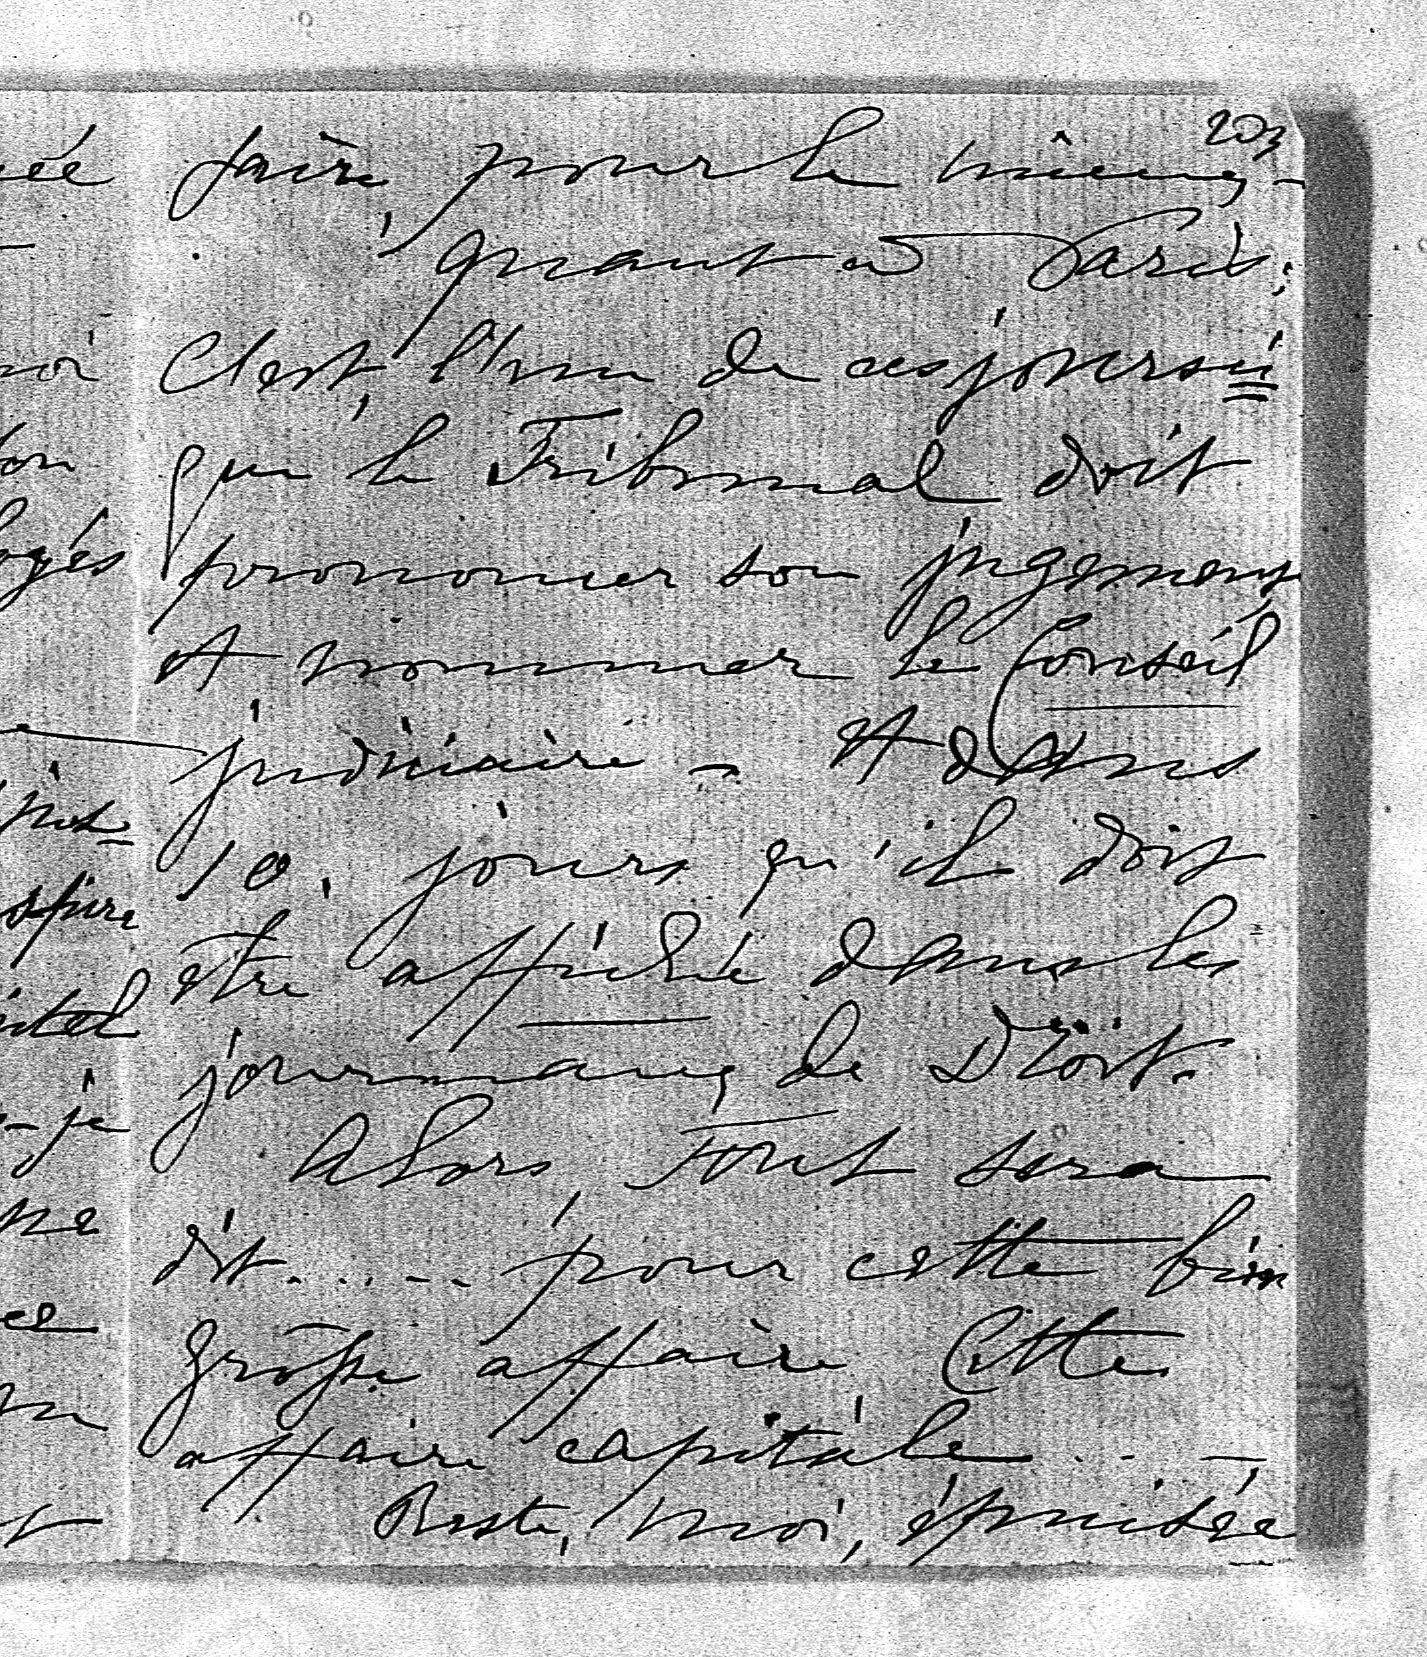 203
faire, pour le mieux –
quant à Paris,
C'est, l'un de ces jours ci
que le Tribunal doit
prononcer son jugement
et nommer le Conseil
judiciaire – et dans
10. jours qu'il doit
être affiché dans les
journaux de Droit.
Alors, tout sera
dit..... pour cette bien
grosse affaire, Cette
affaire capitale...–
Reste, moi, épuisée